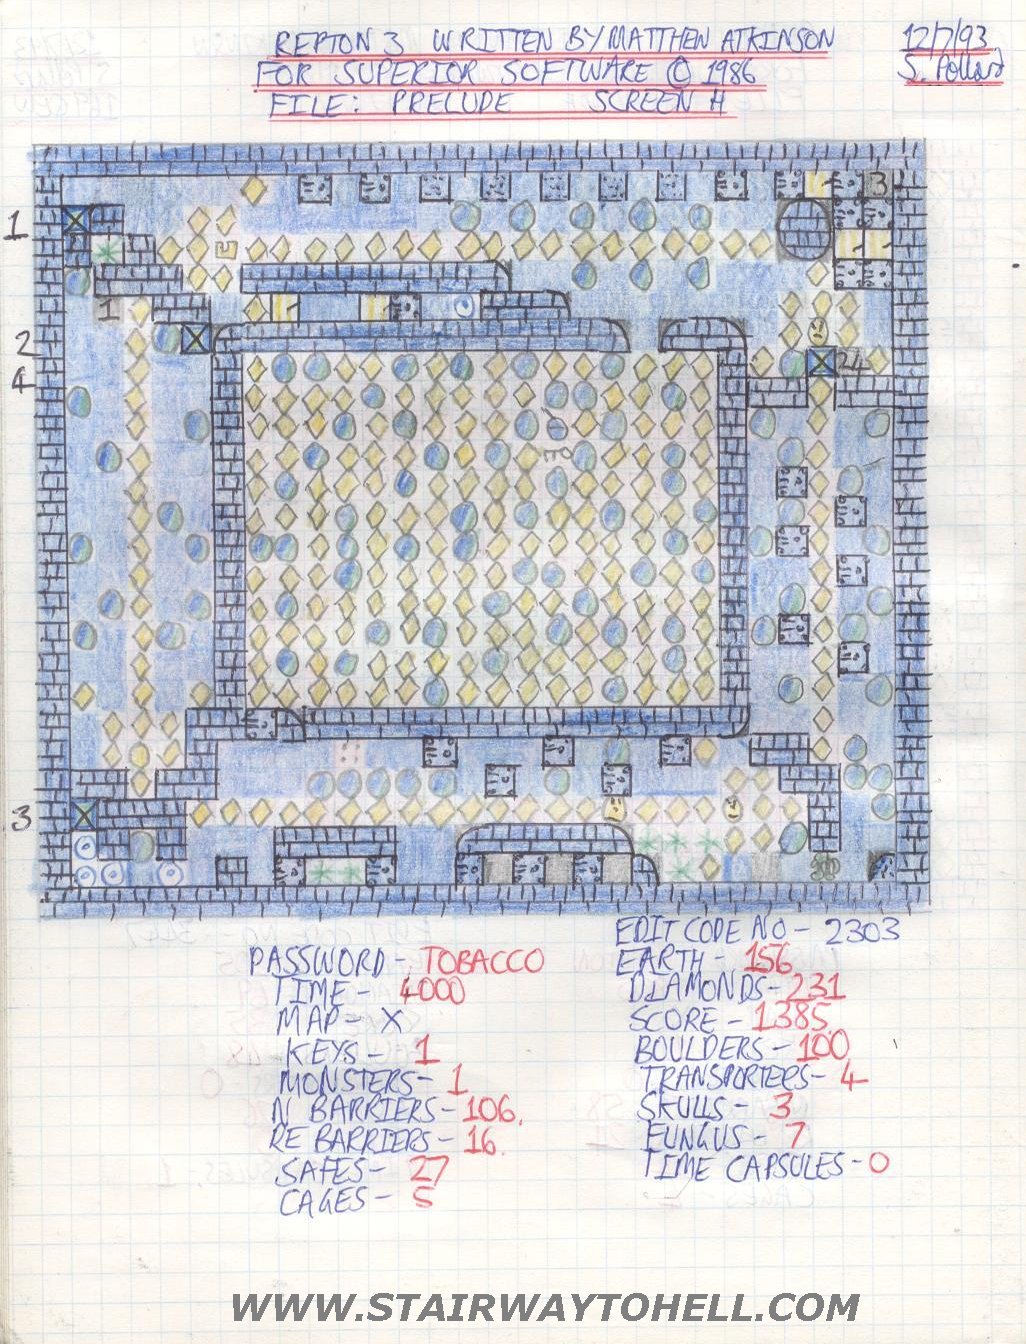 REPTON 3 WRITTEN BY MATTHEW ATKINSON
FOR SUPERIOR SOFTWARE © 1986
FILE: PRELUDE SCREEN H
12/7/93
S. Pollard
3
1
1
2
24
4
3
PASSWORD - TOBACCO
TIME - 4000
MAP - X
KEYS - 1
MONSTERS - 1
N BARRIERS - 106.
RE BARRIERS - 16.
SAFES - 27
CAGES - 5
EDIT CODE NO - 2303
EARTH - 156
DIAMONDS - 231
SCORE - 1385
BOULDERS - 100
TRANSPORTERS - 4
SKULLS - 3
FUNGUS - 7
TIME CAPSULES - 0
WWW.STAIRWAYTOHELL.COM